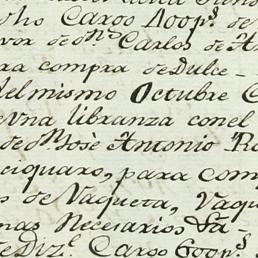 dho Cargo Aoop.s de
vor de d.n Carlos de A
ra compra de Dulce-
del mismo Octubre C
e una libranza con el
de d.n Josè Antonio R
ciquaro, para com
s de Vaqueta, Vaqu
mas Necesarios Sa-
e Diz.e Cargo Goop.s